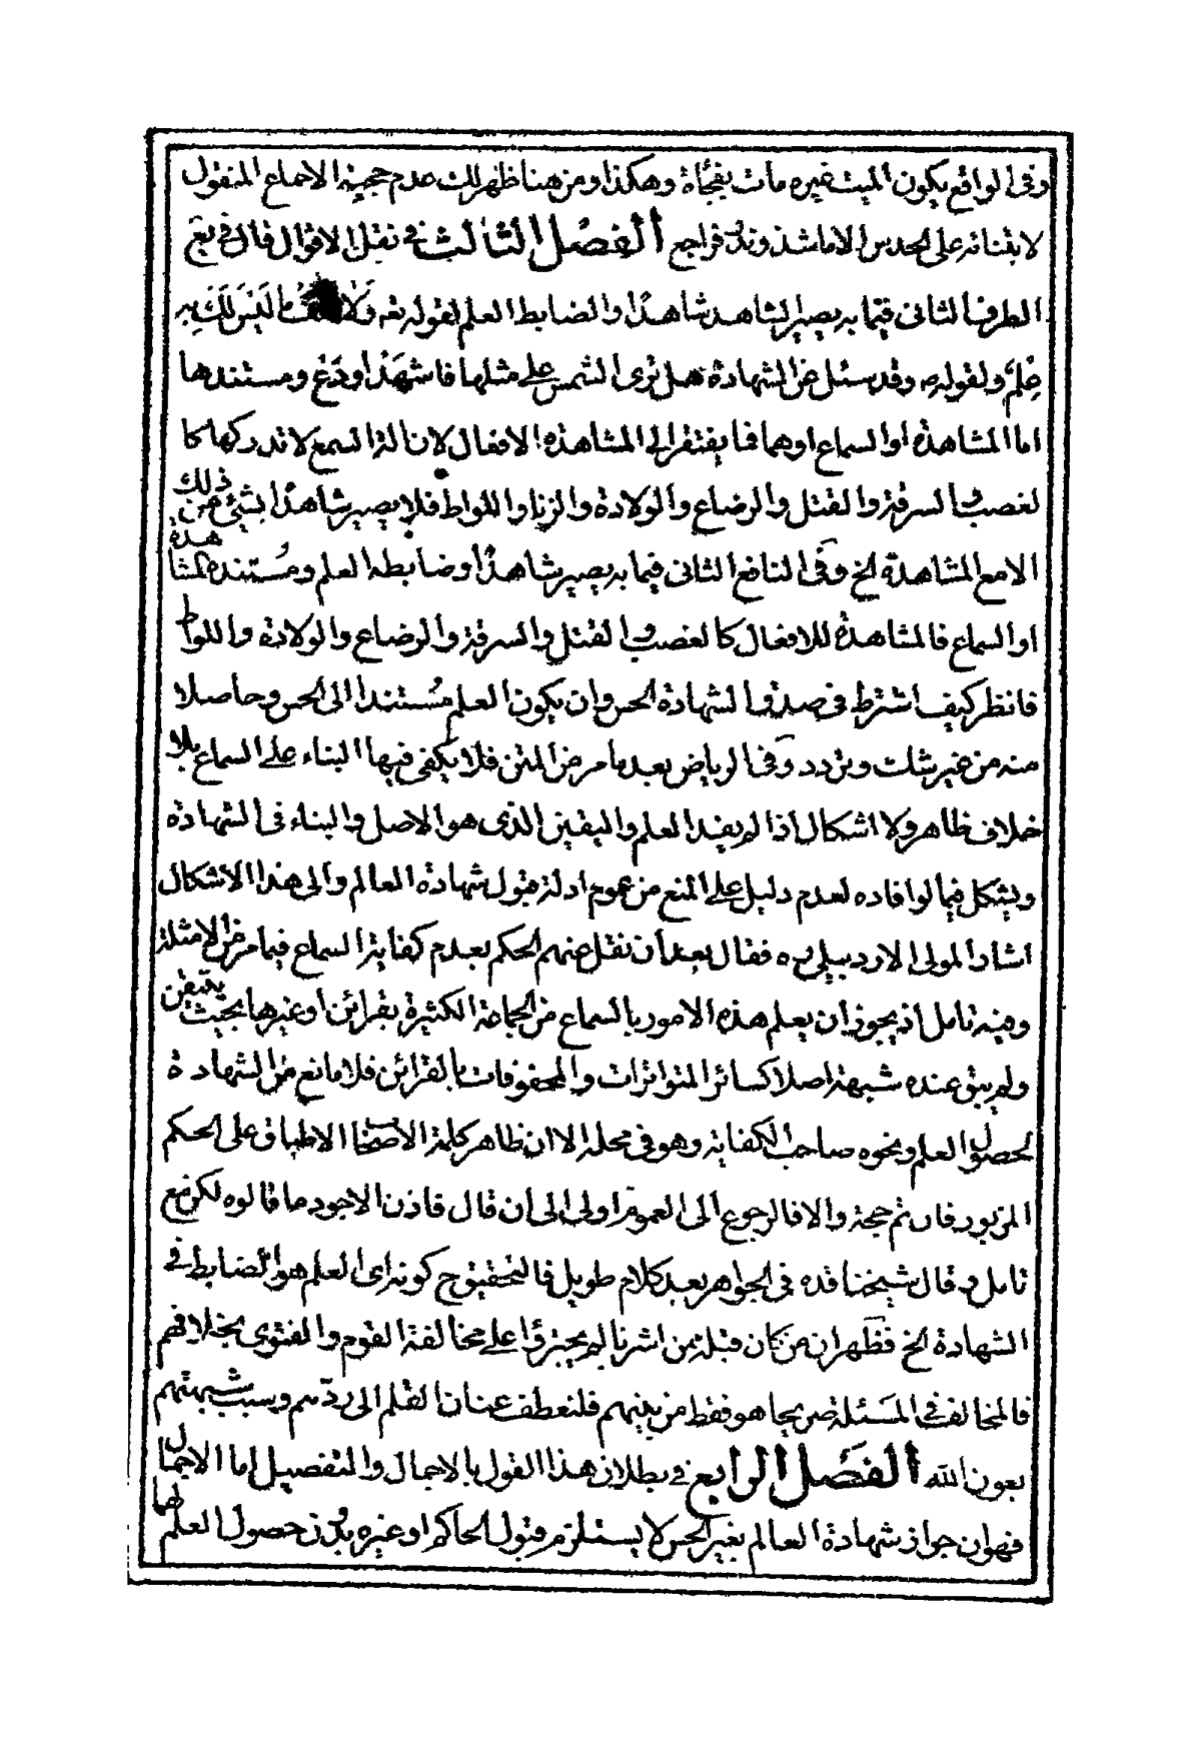 وفى الواقع يكون الميت غيره مات بفجأة وهكذا ومن هنا ظهر لك عدم حجية الاجماع المنقول
لابتنائه على الحدس الا ما شذ وندر فراجع الفصل الثالث فى نقل الاقوال قال فى يع
الطرف الثانى فيما به يصير الشاهد شاهدا والضابط العلم لقوله تعه وَلا تقف ما لَيْسَ لَكَ بِهِ
عِلمٌ ولقوله ص وقد سئل عن الشهادة هل ترى الشمس على مثلها فاشهَدْ او دَعْ ومستندها
اما المشاهدة او السماع او هما فما يفتقر الى المشاهدة الافعال لان الة السمع لا تدركها كا
لغصب والسرقة والقتل والرضاع والولادة والزنا واللواط فلا يصير شاهدا بشئ من ذلك
الا مع المشاهدة الخ وفى النافع الثانى فيما به يصير شاهدا وضابطه العلم ومُستنده المشاهدة
او السماع فالمشاهدة للافعال كالغصب والقتل والسرقة والرضاع والولادة واللواط
فانظر كيف اشترط فى صدق الشهادة الحس وان يكون العلم مُستندا الى الحس وحاصلا
منه من غير شك وتردد وفى الرياض بعد ما مر من المتن فلا يكفى فيها البناء على السماع بلا
خلاف ظاهر ولا اشكال اذا لم يفد العلم واليقين الذى هو الاصل والبناء فى الشهادة
ويشكل فيما لو افاده لعدم دليل على المنع من عموم ادلة قبول شهادة العالم والى هذا الاشكال
اشار المولى الاردبيلى ره فقال بعد أن نقل عنهم الحكم بعدم كفاية السماع فيما مر من الامثلة
وفيه تامل اذ يجوز ان يعلم هذه الامور بالسماع من الجماعة الكثيرة بقرائن او غيرها بحيث يتيقن
ولم يبق عنده شبهة اصلا كسائر المتواترات والمحفوفات بالقرائن فلا مانع من الشهادة
لحصول العلم ونحوه صاحب الكفاية وهو فى محله الا ان ظاهر كلمة الاصحاب الاطباق على الحكم
المزبور فان تم حجة والا فالرجوع الى العموم اولى الى ان قال فاذن الاجود ما قالوه لكن مع
تامل و قال شيخنا قده فى الجواهر بعد كلام طويل فالتحقيق ح كونه اى العلم هو الضابط فى
الشهادة الخ فظهر ان من كان قبله ممن اشرنا لم يجترؤا على مخالفة القوم والفتوى بخلافهم
فالمخالف فى المَسئلة صريحا هو فقط من بينهم فلنعطف عنان القلم الى ردّهم وسبب شبهتهم
بعون الله الفصل الرابع فى بطلان هذا القول بالاجمال والتفصيل اما الاجمال
فهو ان جواز شهادة العالم بغير الحس لا يستلزم قبول الحاكم او غيره بدون حصول العلم لهما